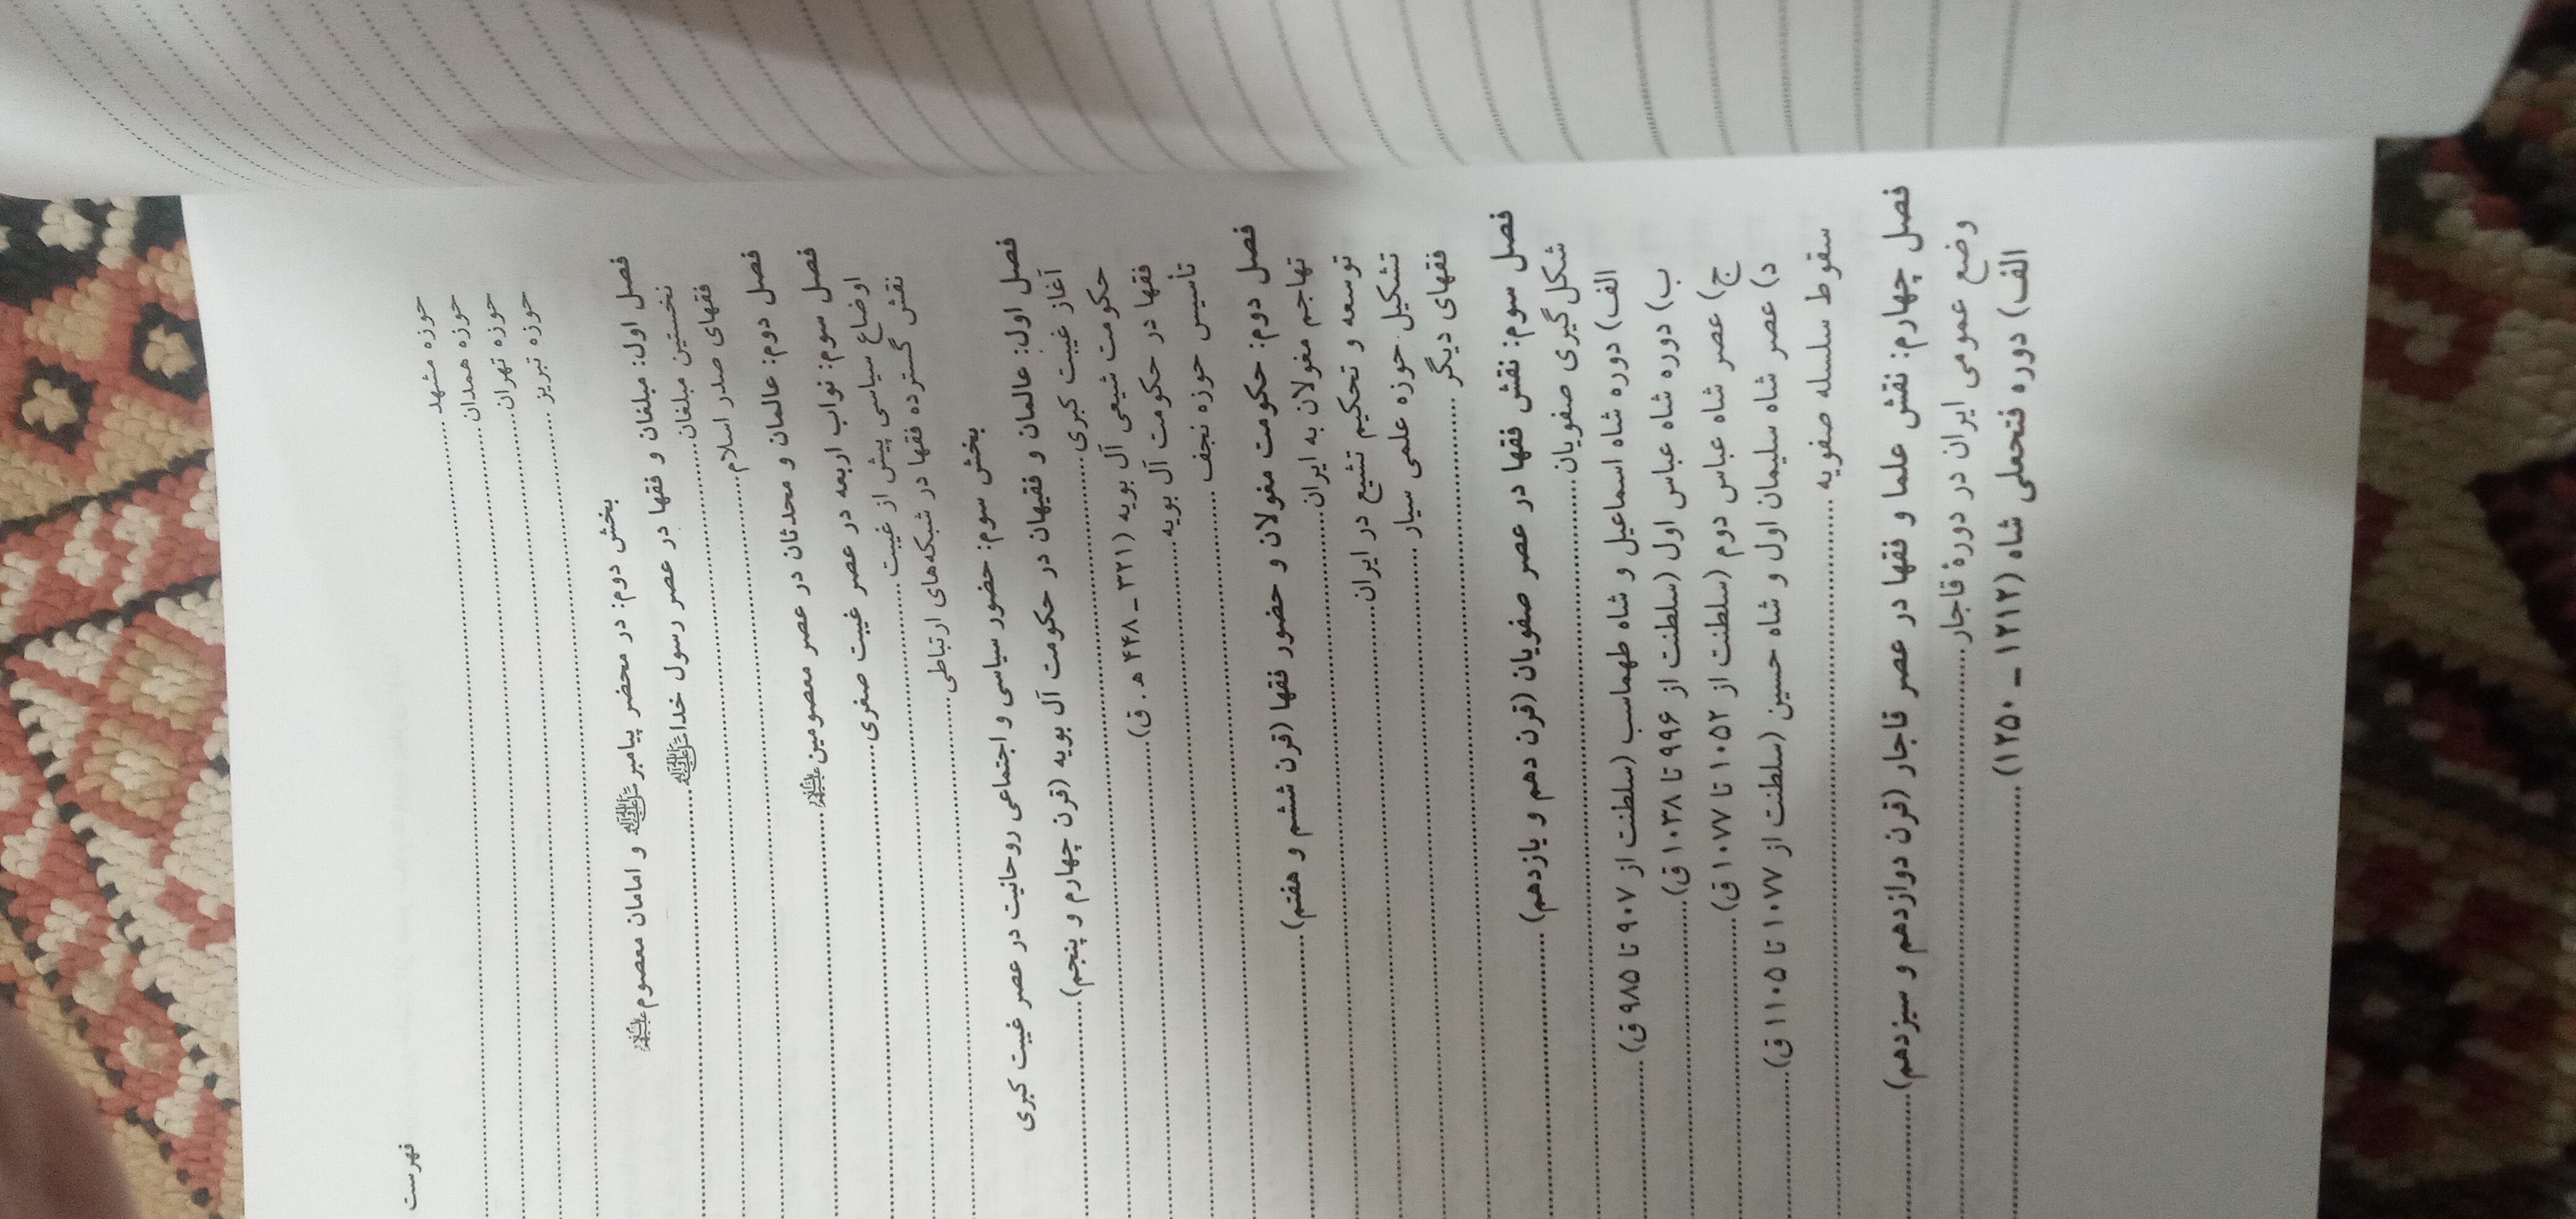 فهرست
حوزه مشهد
حوزه همدان
حوزه تهران
حوزه تبریز
بخش دوم: در محضر پیامبر ﷺ و امامان معصوم
فصل اول: مبلغان و فقها در عصر رسول خدا ﷺ
نخستین مبلغان
فقهای صدر اسلام
فصل دوم: عالمان و محدثان در عصر معصومین
فصل سوم: نواب اربعه در عصر غیبت صغری
اوضاع سیاسی پیش از غیبت
نقش گسترده فقها در شبکه‌های ارتباطی
بخش سوم: حضور سیاسی و اجتماعی روحانیت در عصر غیبت کبری
فصل اول: عالمان و فقیهان در حکومت آل بویه (قرن چهارم و پنجم)
آغاز غیبت کبری
حکومت شیعی آل بویه (۳۲۱ ـ ۴۴۸ ه‍ . ق)
فقها در حکومت آل بویه
تأسیس حوزه نجف
فصل دوم: حکومت مغولان و حضور فقها (قرن ششم و هفتم)
تهاجم مغولان به ایران
توسعه و تحکیم تشیع در ایران
تشکیل حوزه علمی سیار
فقهای دیگر
فصل سوم: نقش فقها در عصر صفویان (قرن دهم و یازدهم)
شکل‌گیری صفویان
الف) دوره شاه اسماعیل و شاه طهماسب (سلطنت از ۹۰۷ تا ۹۸۵ ق)
ب) دوره شاه عباس اول (سلطنت از ۹۹۶ تا ۱۰۳۸ ق)
ج) عصر شاه عباس دوم (سلطنت از ۱۰۵۲ تا ۱۰۷۷ ق)
د) عصر شاه سلیمان اول و شاه حسین (سلطنت از ۱۰۷۷ تا ۱۱۰۵ ق)
سقوط سلسله صفویه
فصل چهارم: نقش علما و فقها در عصر قاجار (قرن دوازدهم و سیزدهم)
وضع عمومی ایران در دورهٔ قاجار
الف) دوره فتحعلی شاه (۱۲۱۲ ـ ۱۲۵۰)